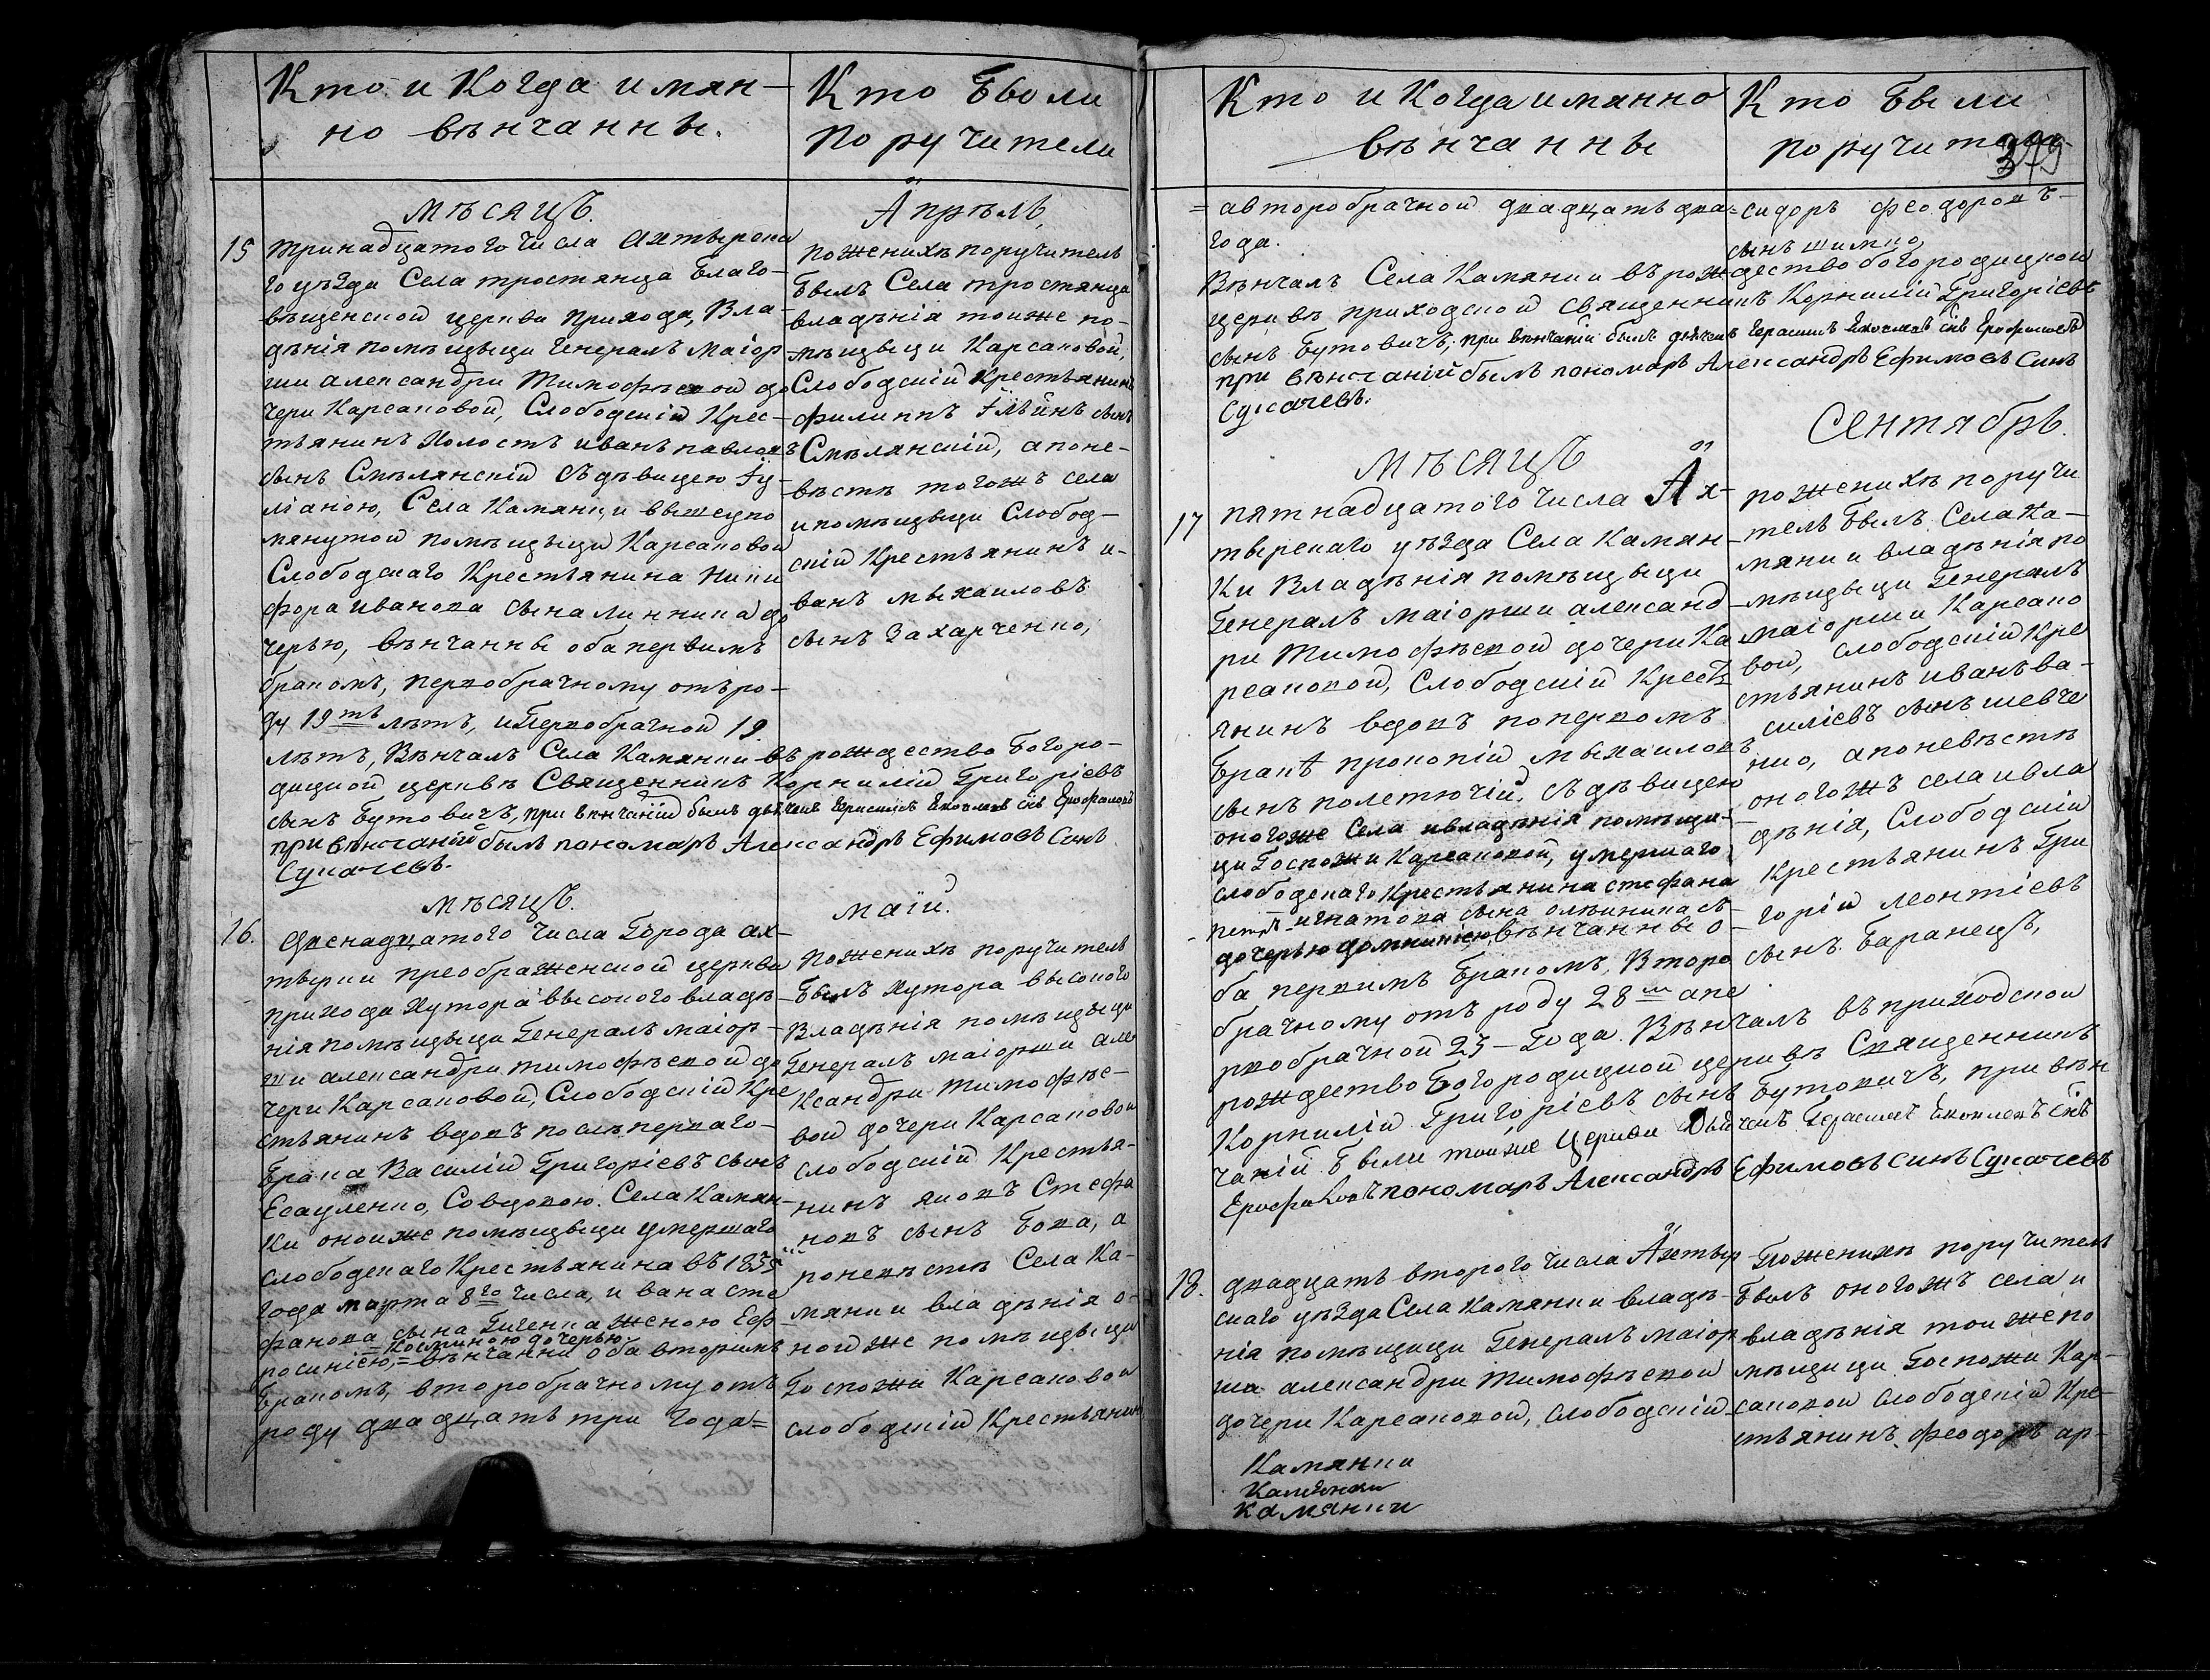 Кто и Когда имян-
но вѣнчанны.
Кто Были
поручители
Мѣсяцъ.
Апрѣль
15
тринадцатого числа Ахтырска
го уѣзда Села тростянца Благо-
вѣщенской церкви прихода, Вла-
дѣнія помѣщицы Генералъ маіор
ши александри Тимофѣевой до
чери Карсаковой, Слободскій Крес-
тьянинъ Холостъ иванъ павловъ
сынъ Смѣлянскій Съ дѣвицею Іу-
ліаною, Села Камянки вышеупо
мянутой помѣщицы Карсаковой
Слободскаго Крестьянина Ники
фора иванова сына линника до
черью, вѣнчанны оба первымъ
бракомъ, первобрачному отъ ро-
ду 19ть лѣтъ, и Первобрачной 19
лѣтъ, Вѣнчалъ Села Камянки въ рождество Богоро-
дицкой церквѣ Священникъ Корнилій Григоріевъ
сынъ Бутовичъ, при вѣнчаніи былъ дьячекъ Герасимъ Яковлевъ снъ Ерофаловъ
при вѣнчаній былъ пономарь Александръ Ефимовъ Синъ
Сукачевъ.
по женихѣ поручитель
Былъ Села тростянца
владѣнія тоиже по-
мѣщицы Карсаковой,
Слободскій Крестьянинъ
филиппъ Ільинъ сынъ
Смѣлянскій, а поне-
вѣстѣ тогожъ села
и помѣщицы Слобод-
скій Крестьянинъ и-
ванъ мыхаиловъ
сынъ Захарченко,
мѣсяцъ.
маій.
16.
двенадцатого числа Города ах-
тырки преображенской церкви
прихода Хутора высокого владѣ-
нія помѣщицы Генералъ маіор-
ши александри тимофѣевой до
чери Карсаковой, Слободскій Кре
стьянинъ вдовъ послѣ перваго
Брака Василій Григоріевъ сынъ
Есауленко, Со вдовою Села Камян-
ки оноиже помѣщицы умершаго
слободскаго Крестьянина въ 1835
года марта 8го числа, ивана сте
фанова сына Гиченка женою Еф
= косминою дочерью.
росиніею,= вѣнчанни оба вторимъ
Бракомъ, второбрачному отъ
роду двадцать три года=
По женихѣ поручитель
Былъ Хутора высокого
Владѣнія помѣщицы
Генералъ маіорши але
ксандри Тимофѣе-
вой дочери Карсаковой
слободскій Крестья-
нинъ яковъ Стефа
новъ сынъ Бока, а
поневѣстѣ Села Ка-
мянки владѣнія о-
ноиже помѣщицы
Госпожи Карсаковой
слободскій Крестьянин
Кто и Когда имянно
вѣнчанны
Кто Были
поручители
379
= а второбрачной двадцать два=
года.
сидоръ феодоровъ
сынъ шимко,
Вѣнчалъ Села Камянки въ рождество богородицкой
церквѣ приходской священникъ Корнилій Григоріевъ
сынъ Бутовичъ, при вѣнчаніи былъ дьячекъ Герасимъ Яковлевъ снъ Ерофаловъ
при вѣнчаній былъ пономарь Александръ Ефимовъ Синъ
Сукачевъ.
Мѣсяцъ
Сентябрь.
17
пятнадцатого числа Ах-
тырскаго уѣзда Села Камян-
Ки Владѣнія помѣщицы
Генералъ маіорши александ
ри Тимофѣевой дочери Ка
рсаковой, Слободскій Кресть
янинъ вдовъ по первомъ
Бракѣ прокопій мыхаиловъ
сынъ полетючій, Съ дѣвицею
оногоже Села ивладѣнія помѣщи-
ци Госпожи Карсаковой, умершаго
слободскаго Крестьянина стефана
игнатова сына олѣиника съ
дочерью домникіею, вѣнчанны о-
ба первимъ Бракомъ, Второ
брачному отъ роду 28 апе
рвобрачной 25-Года. Вѣнчалъ въ приходской
рождество Богородицкой церквѣ Священникъ
Корнилій Григоріевъ сынъ Бутовичъ, при вѣн
чаній Были тоиже Церкви Дьячекъ Герасимъ Яковлевъ снъ
Ерофаловъ пономарь Александръ Ефимовъ синъ Сукачевъ
по женихѣ поручи
тель Былъ Села Ка-
мянки владѣнія по
мѣщицы Генералъ
маіорши Карсако
вой, слободскій Кре
стьянинъ иванъ ва-
силіевъ сынъ шевче
нко, а поневѣстѣ
оногожъ села и вла
дѣнія, Слободскій
Крестьянинъ Гри
горій леонтіевъ
сынъ Баранецъ,
18.
двадцать второго числа Ахтыр
скаго уѣзда Села Камянки владѣ-
нія помѣщици Генералъ маіор
ши александри тимофѣевой
дочери Карсаковой, слободскій
По женихѣ поручитель
Былъ оногожъ села и
владѣнія тои же по
мѣщици Госпожи Кар-
саковой слободскій Кре-
стьянинъ феодоръ ар-
Камянки
Камянки
Камянки